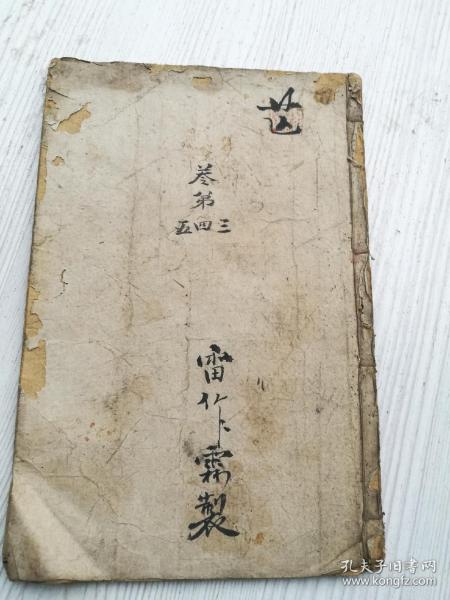 卷第
三四五
雷作霖製
孔夫子旧书网
www.kongfz.com